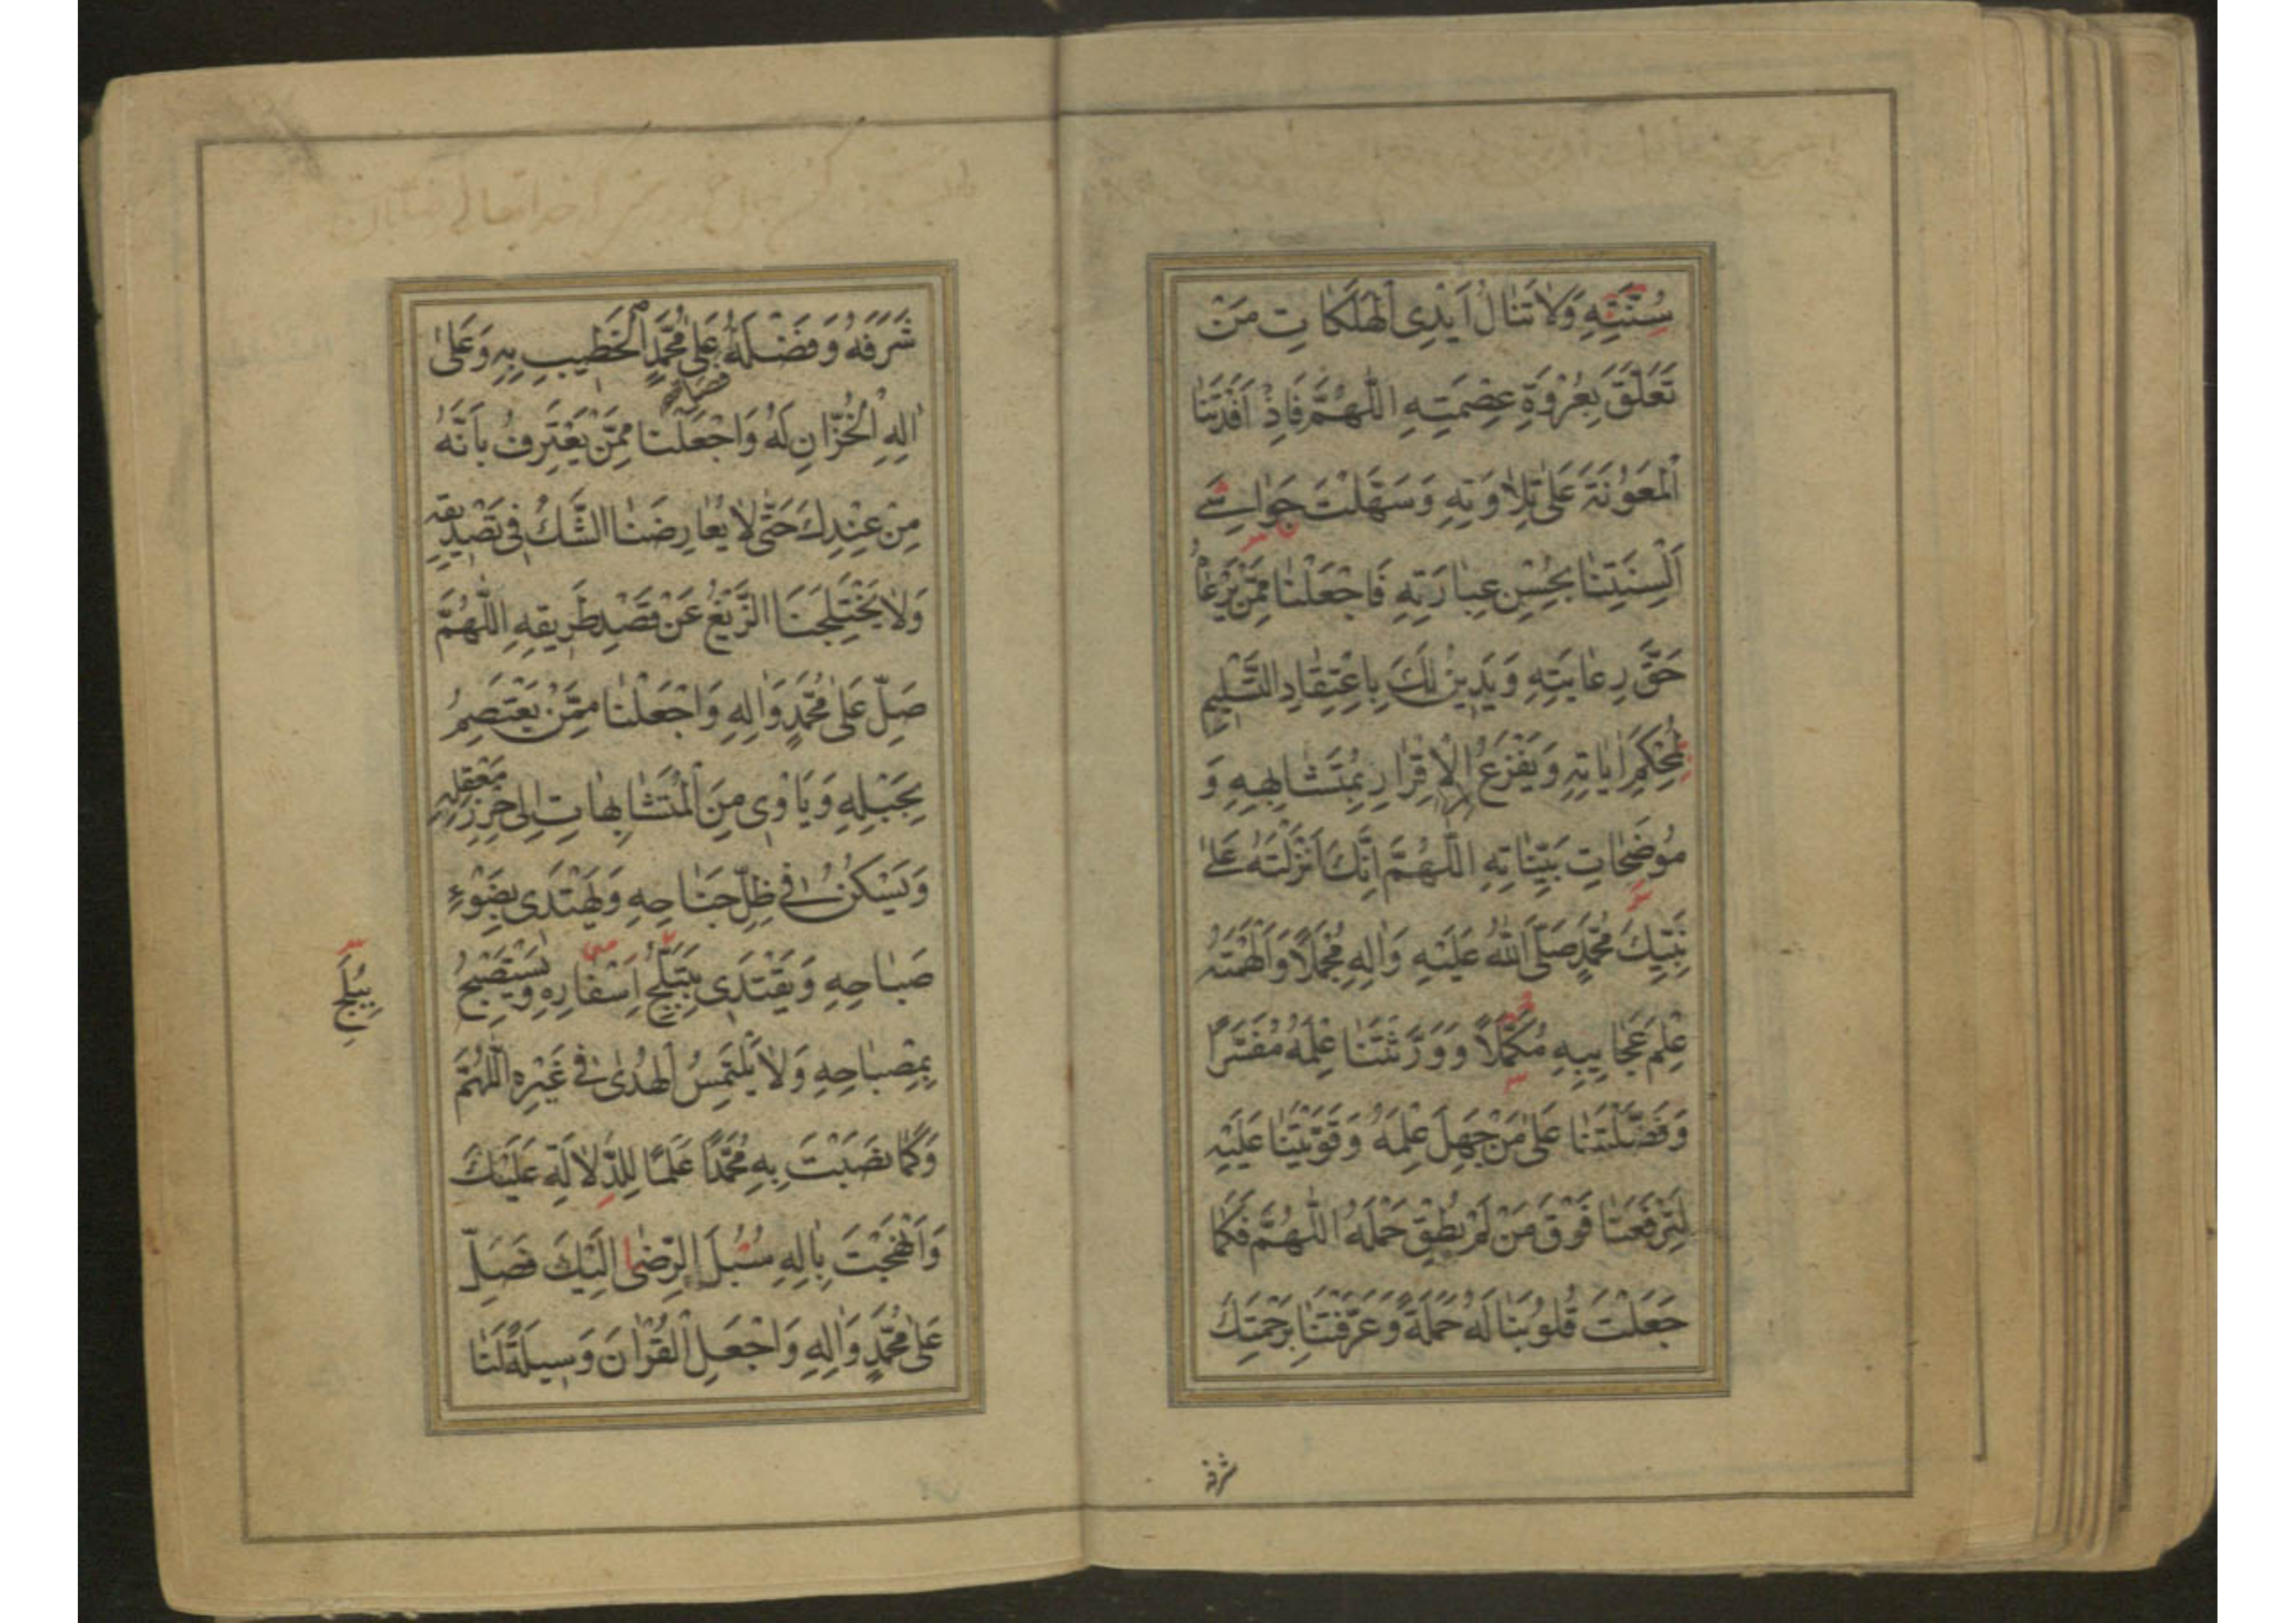 سُنَّتِهِ وَلَا تَنَالُ أَيْدِى الْهَلَكَاتِ مَنْ
تَعَلَّقَ بِعُرْوَةِ عِصْمَتِهِ اللّٰهُمَّ فَاِذْ اَفَدْتَنَا
الْمَعُونَةَ عَلٰى تِلَاوَتِهِ وَسَهَّلْتَ جَوَاسِىَ
اَلْسِنَتِنَا بِحُسْنِ عِبَارَتِهِ فَاجْعَلْنَا مِمَّنْ يَرْعَاهُ
حَقَّ رِعَايَتِهِ وَيَدِينُ لَكَ بِاعْتِقَادِ التَّسْلِيمِ
لِمُحْكَمِ اٰيَاتِهِ وَيَفْزَعُ اِلَى الْاِقْرَارِ بِمُتَشَابِهِهِ وَ
مُوضِحَاتِ بَيِّنَاتِهِ اللّٰهُمَّ اِنَّكَ اَنْزَلْتَهُ عَلٰى
نَبِيِّكَ مُحَمَّدٍ صَلَّى اللّٰهُ عَلَيْهِ وَاٰلِهِ مُجْمَلًا وَاَلْهَمْتَهُ
عِلْمَ عَجَايِبِهِ مُكَمَّلًا وَوَرَّثْتَنَا عِلْمَهُ مُفَسَّرًا
وَفَضَّلْتَنَا عَلٰى مَنْ جَهِلَ عِلْمَهُ وَقَوَّيْتَنَا عَلَيْهِ
لِتَرْفَعَنَا فَوْقَ مَنْ لَمْ يُطِقْ حَمْلَهُ اللّٰهُمَّ فَكَمَا
جَعَلْتَ قُلُوبَنَا لَهُ حَمَلَةً وَعَرَّفْتَنَا بِرَحْمَتِكَ
شرفه
شَرَفَهُ وَفَضْلَهُ فصل عَلٰى مُحَمَّدٍ الْخَطِيبِ بِهِ وَعَلٰى
اٰلِهِ الْخُزَّانِ لَهُ وَاجْعَلْنَا مِمَّنْ يَعْتَرِفُ بِاَنَّهُ
مِنْ عِنْدِكَ حَتّٰى لَا يُعَارِضَنَا الشَّكُّ فِى تَصْدِيقِهِ
وَلَا يَخْتَلِجَنَا الزَّيْغُ عَنْ قَصْدِ طَرِيقِهِ اللّٰهُمَّ
صَلِّ عَلٰى مُحَمَّدٍ وَاٰلِهِ وَاجْعَلْنَا مِمَّنْ يَعْتَصِمُ
بِحَبْلِهِ وَيَاْوِى مِنَ الْمُتَشَابِهَاتِ اِلٰى حِرْزِ مَعْقِلِهِ
وَيَسْكُنُ فِى ظِلِّ جَنَاحِهِ وَيَهْتَدِى بِضَوْءِ
صَبَاحِهِ وَيَقْتَدِى بِتَبَلُّجِ اِسْفَارِهِ وَيَسْتَصْبِحُ
بِمِصْبَاحِهِ وَلَا يَلْتَمِسُ الْهُدٰى فِى غَيْرِهِ اللّٰهُمَّ
وَكَمَا نَصَبْتَ بِهِ مُحَمَّدًا عَلَمًا لِلدِّلَالَةِ عَلَيْكَ
وَاَنْهَجْتَ بِاٰلِهِ سُبُلَ الرِّضٰا اِلَيْكَ فَصَلِّ
عَلٰى مُحَمَّدٍ وَاٰلِهِ وَاجْعَلِ الْقُرْاٰنَ وَسِيلَةً لَنَا